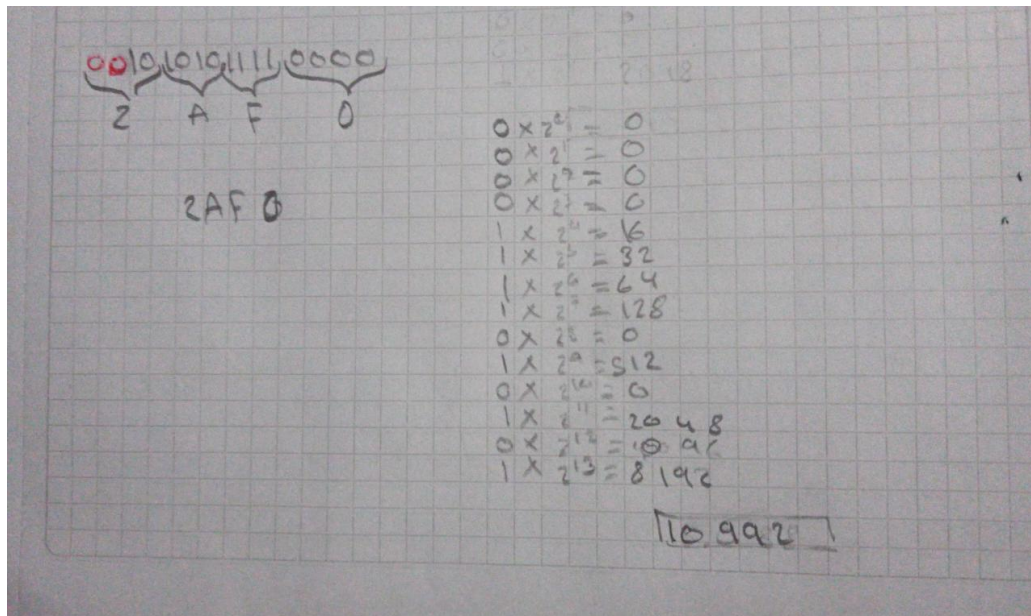 0010101011110000
2 A F 0
2AF0
0 × 2⁰ = 0
0 × 2¹ = 0
0 × 2² = 0
0 × 2³ = 0
1 × 2⁴ = 16
1 × 2⁵ = 32
1 × 2⁶ = 64
1 × 2⁷ = 128
0 × 2⁸ = 0
1 × 2⁹ = 512
0 × 2¹⁰ = 0
1 × 2¹¹ = 2048
0 × 2¹² = 0
1 × 2¹³ = 8192
10.992